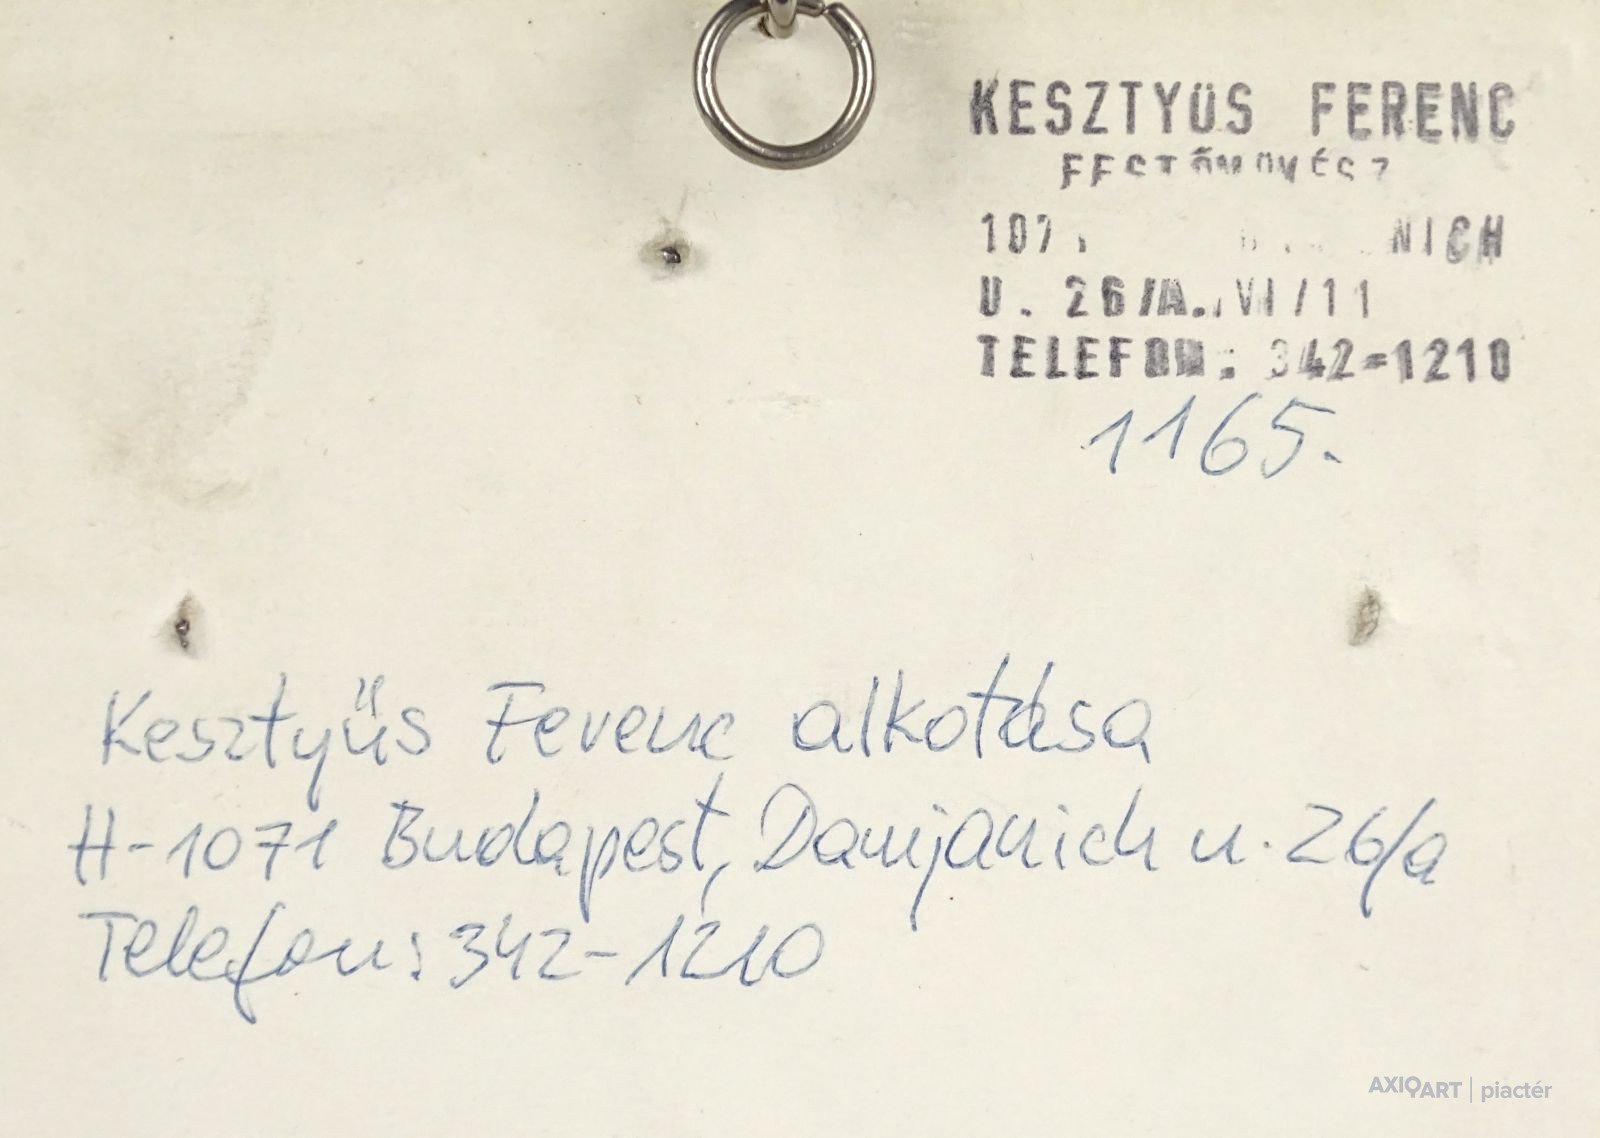 KESZTYÜS FERENC
FESTŐMŰVÉSZ
NICH
U. 26/A. VI/11
TELEFON: 342-1210
1165.
Kesztyűs Ferenc alkotása
H-1071 Budapest, Damjanich u. 26/a
Telefon: 342-1210
AXIOART | piactér